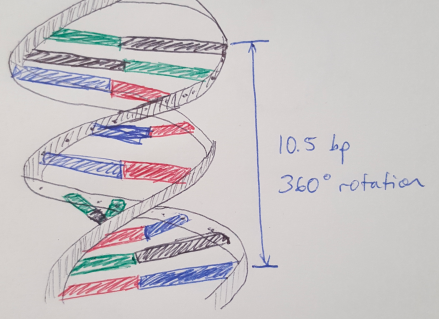 10.5 bp
360° rotation